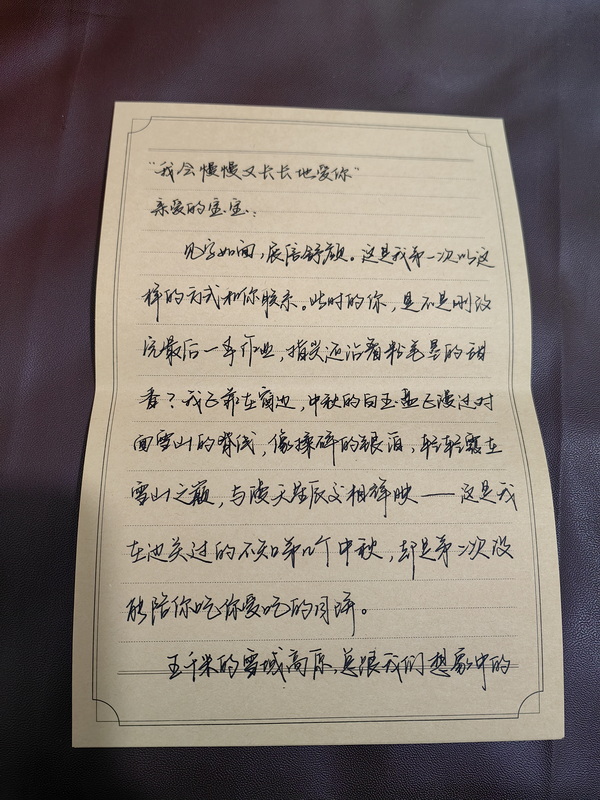 “我会慢慢又长长地爱你”
亲爱的宝宝：
见字如面，展信舒颜。这是我第一次以这
样的方式和你联系。此时的你，是不是刚改
完最后一本作业，指尖还沾着粉笔墨的甜
香？我正靠在窗边，中秋的白玉盘正漫过对
面雪山的脊线，像揉碎的银酒，轻轻飘在
雪山之巅，与漫天星辰交相辉映——这是我
在边关过的不知第几个中秋，却是第二次没
能陪你吃你爱吃的月饼。
五千米的雪域高原，总跟我们想象中的